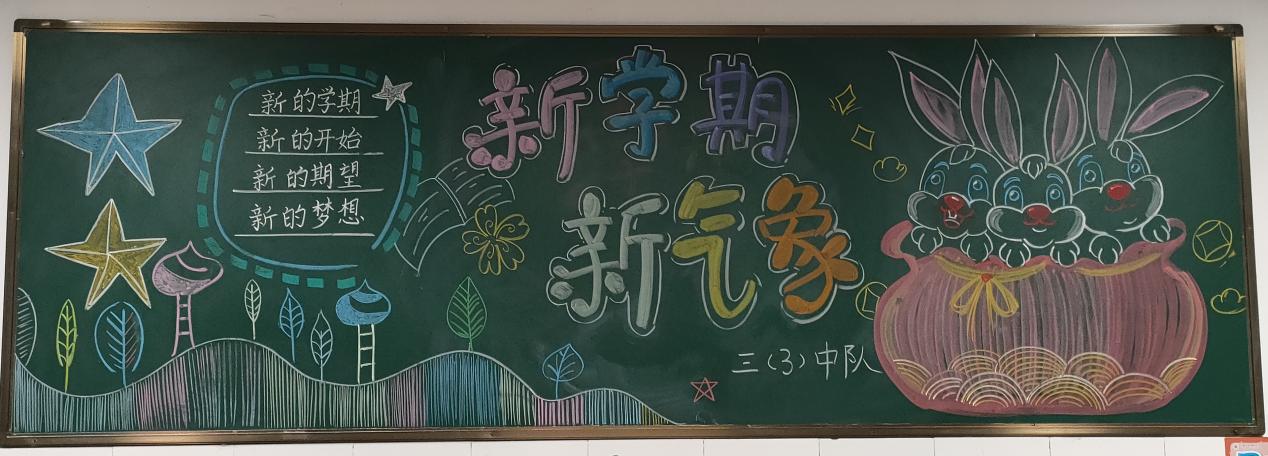 新的学期
新的开始
新的期望
新的梦想
新学期
新气象
三(3)中队